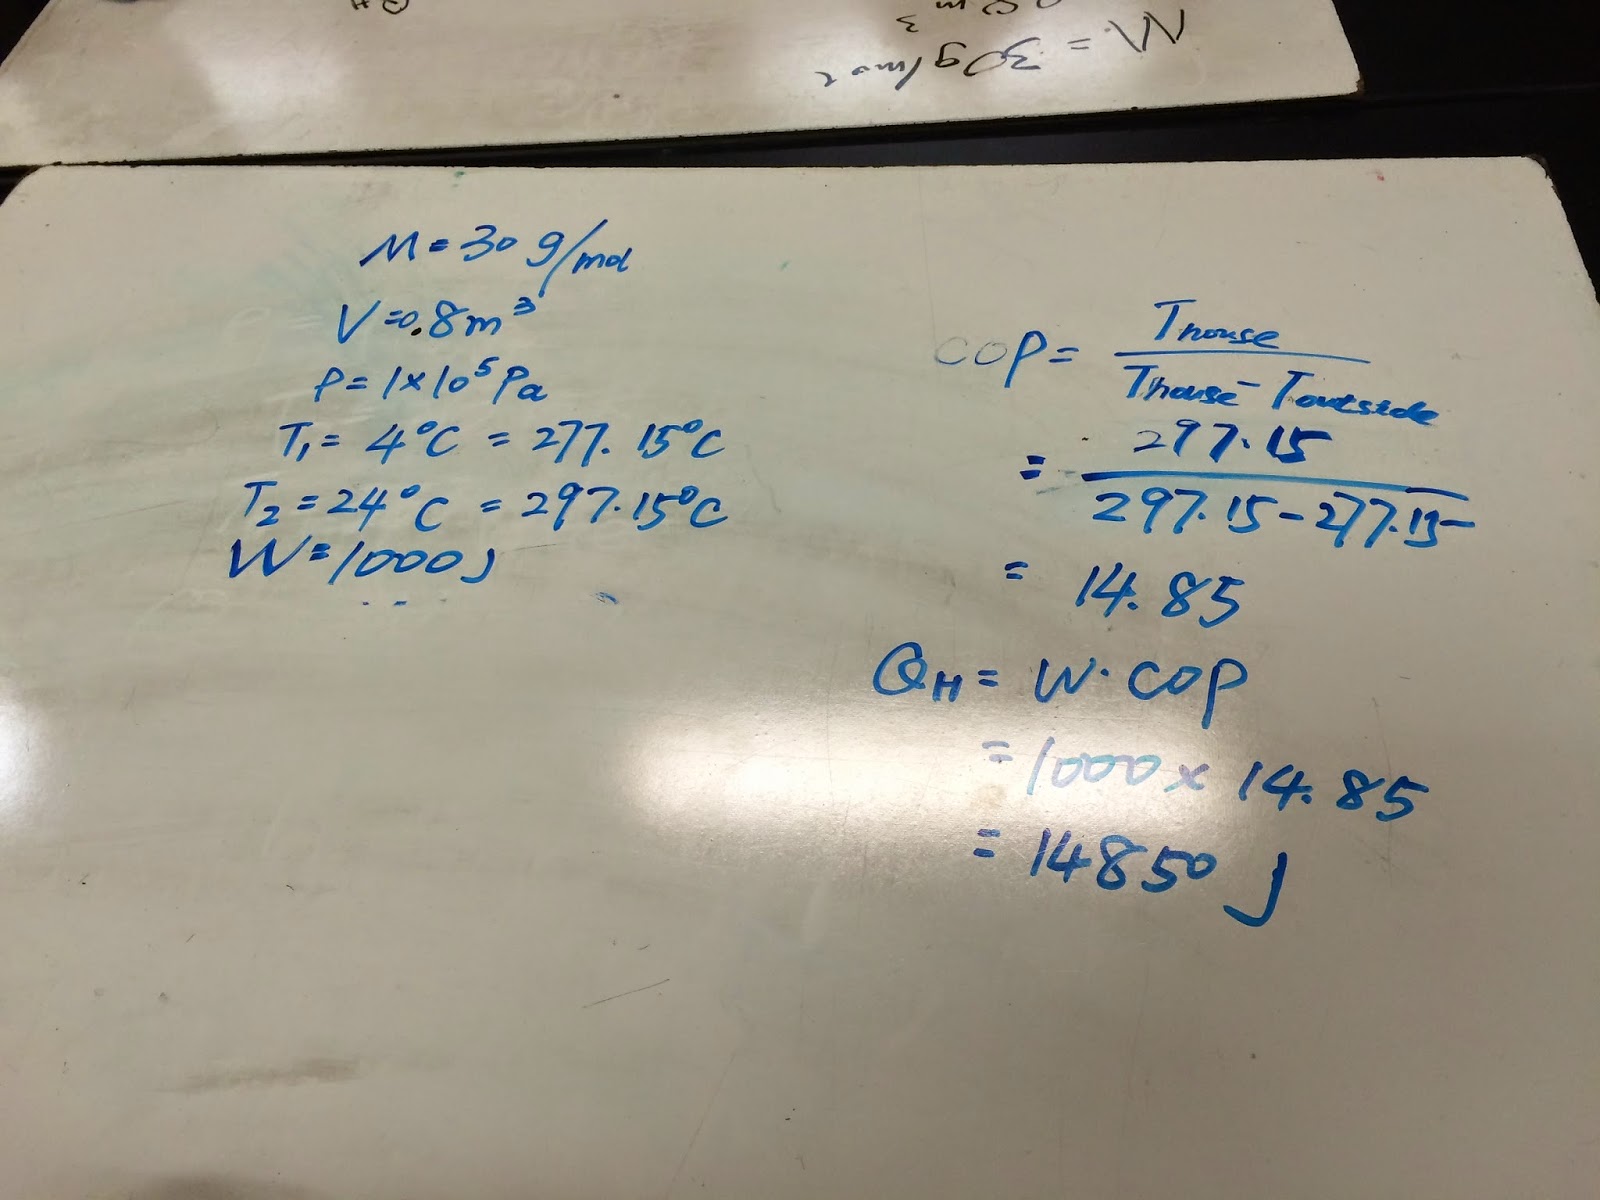 M = 30 g/mol
m³
M = 30 g/mol
V = 0.8 m³
P = 1×10⁵ Pa
T₁ = 4°C = 277.15°C
T₂ = 24°C = 297.15°C
W = 1000 J
COP = Thouse / Thouse - Toutside
= 297.15 / 297.15 - 277.15
= 14.85
QH = W · COP
= 1000 × 14.85
= 14850 J